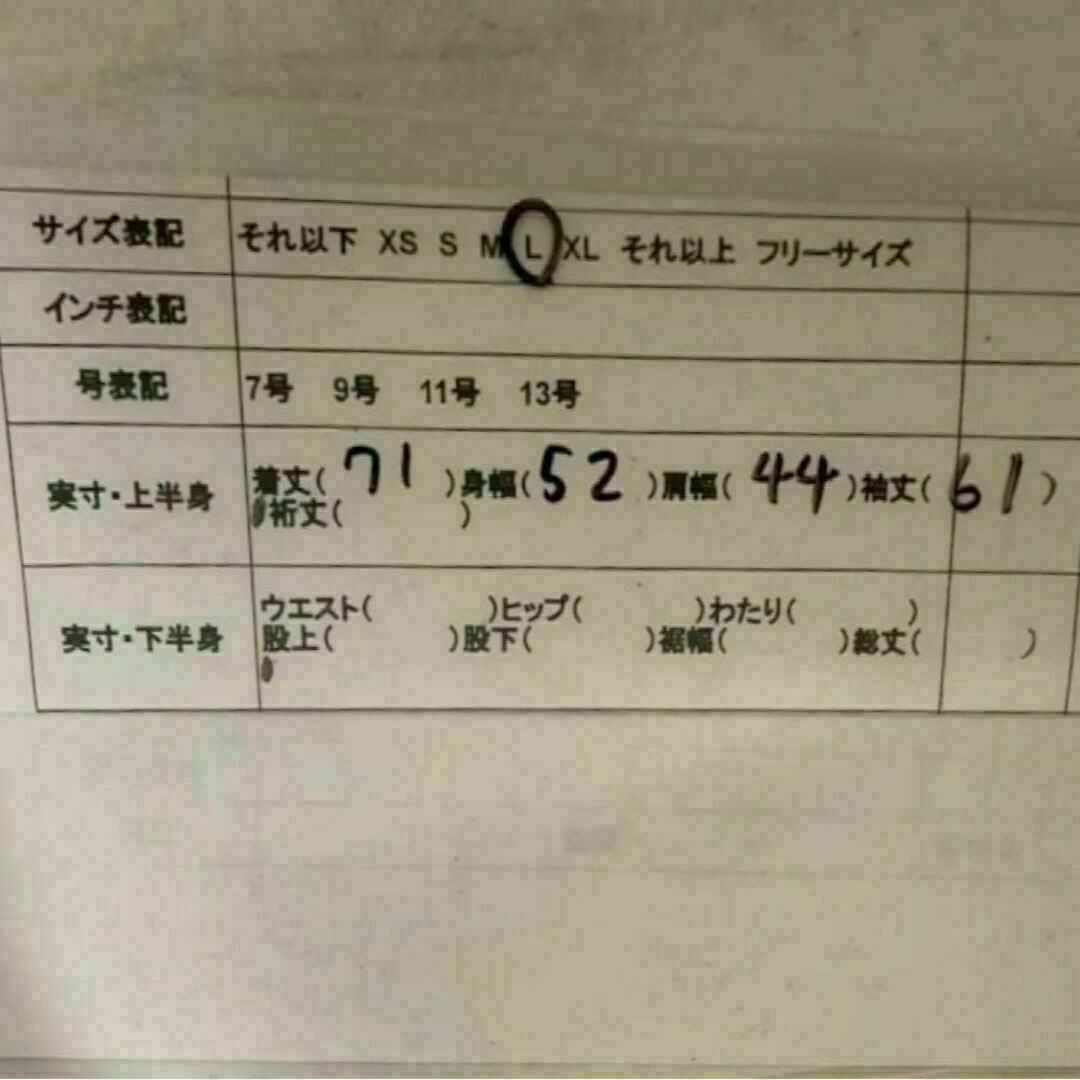 サイズ表記 それ以下 XS S M L XL それ以上 フリーサイズ
インチ表記
号表記 7号 9号 11号 13号
実寸・上半身 着丈( 71 )身幅( 52 )肩幅( 44 )袖丈( 61 )
裄丈( )
実寸・下半身 ウエスト( )ヒップ( )わたり( )
股上( )股下( )裾幅( )総丈( )